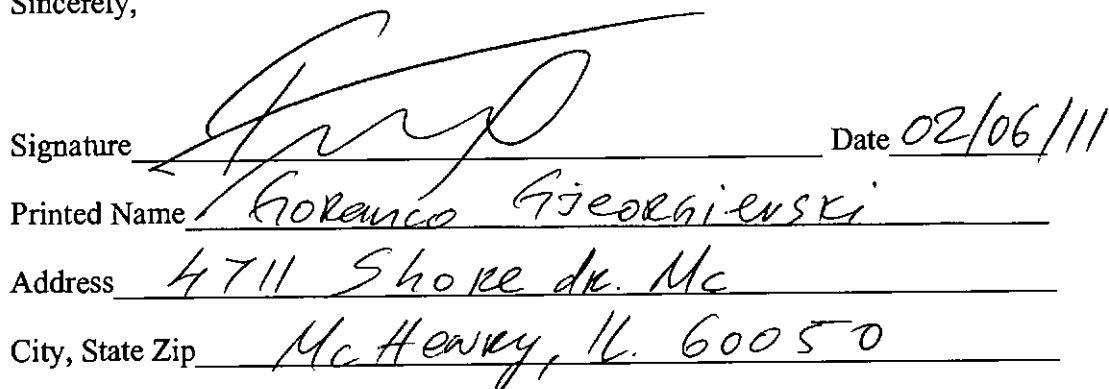 Sincerely,
Signature Date 02/06/11
Printed Name Goranco Gjeorgievski
Address 4711 Shore dr. Mc
City, State Zip McHenry, IL. 60050